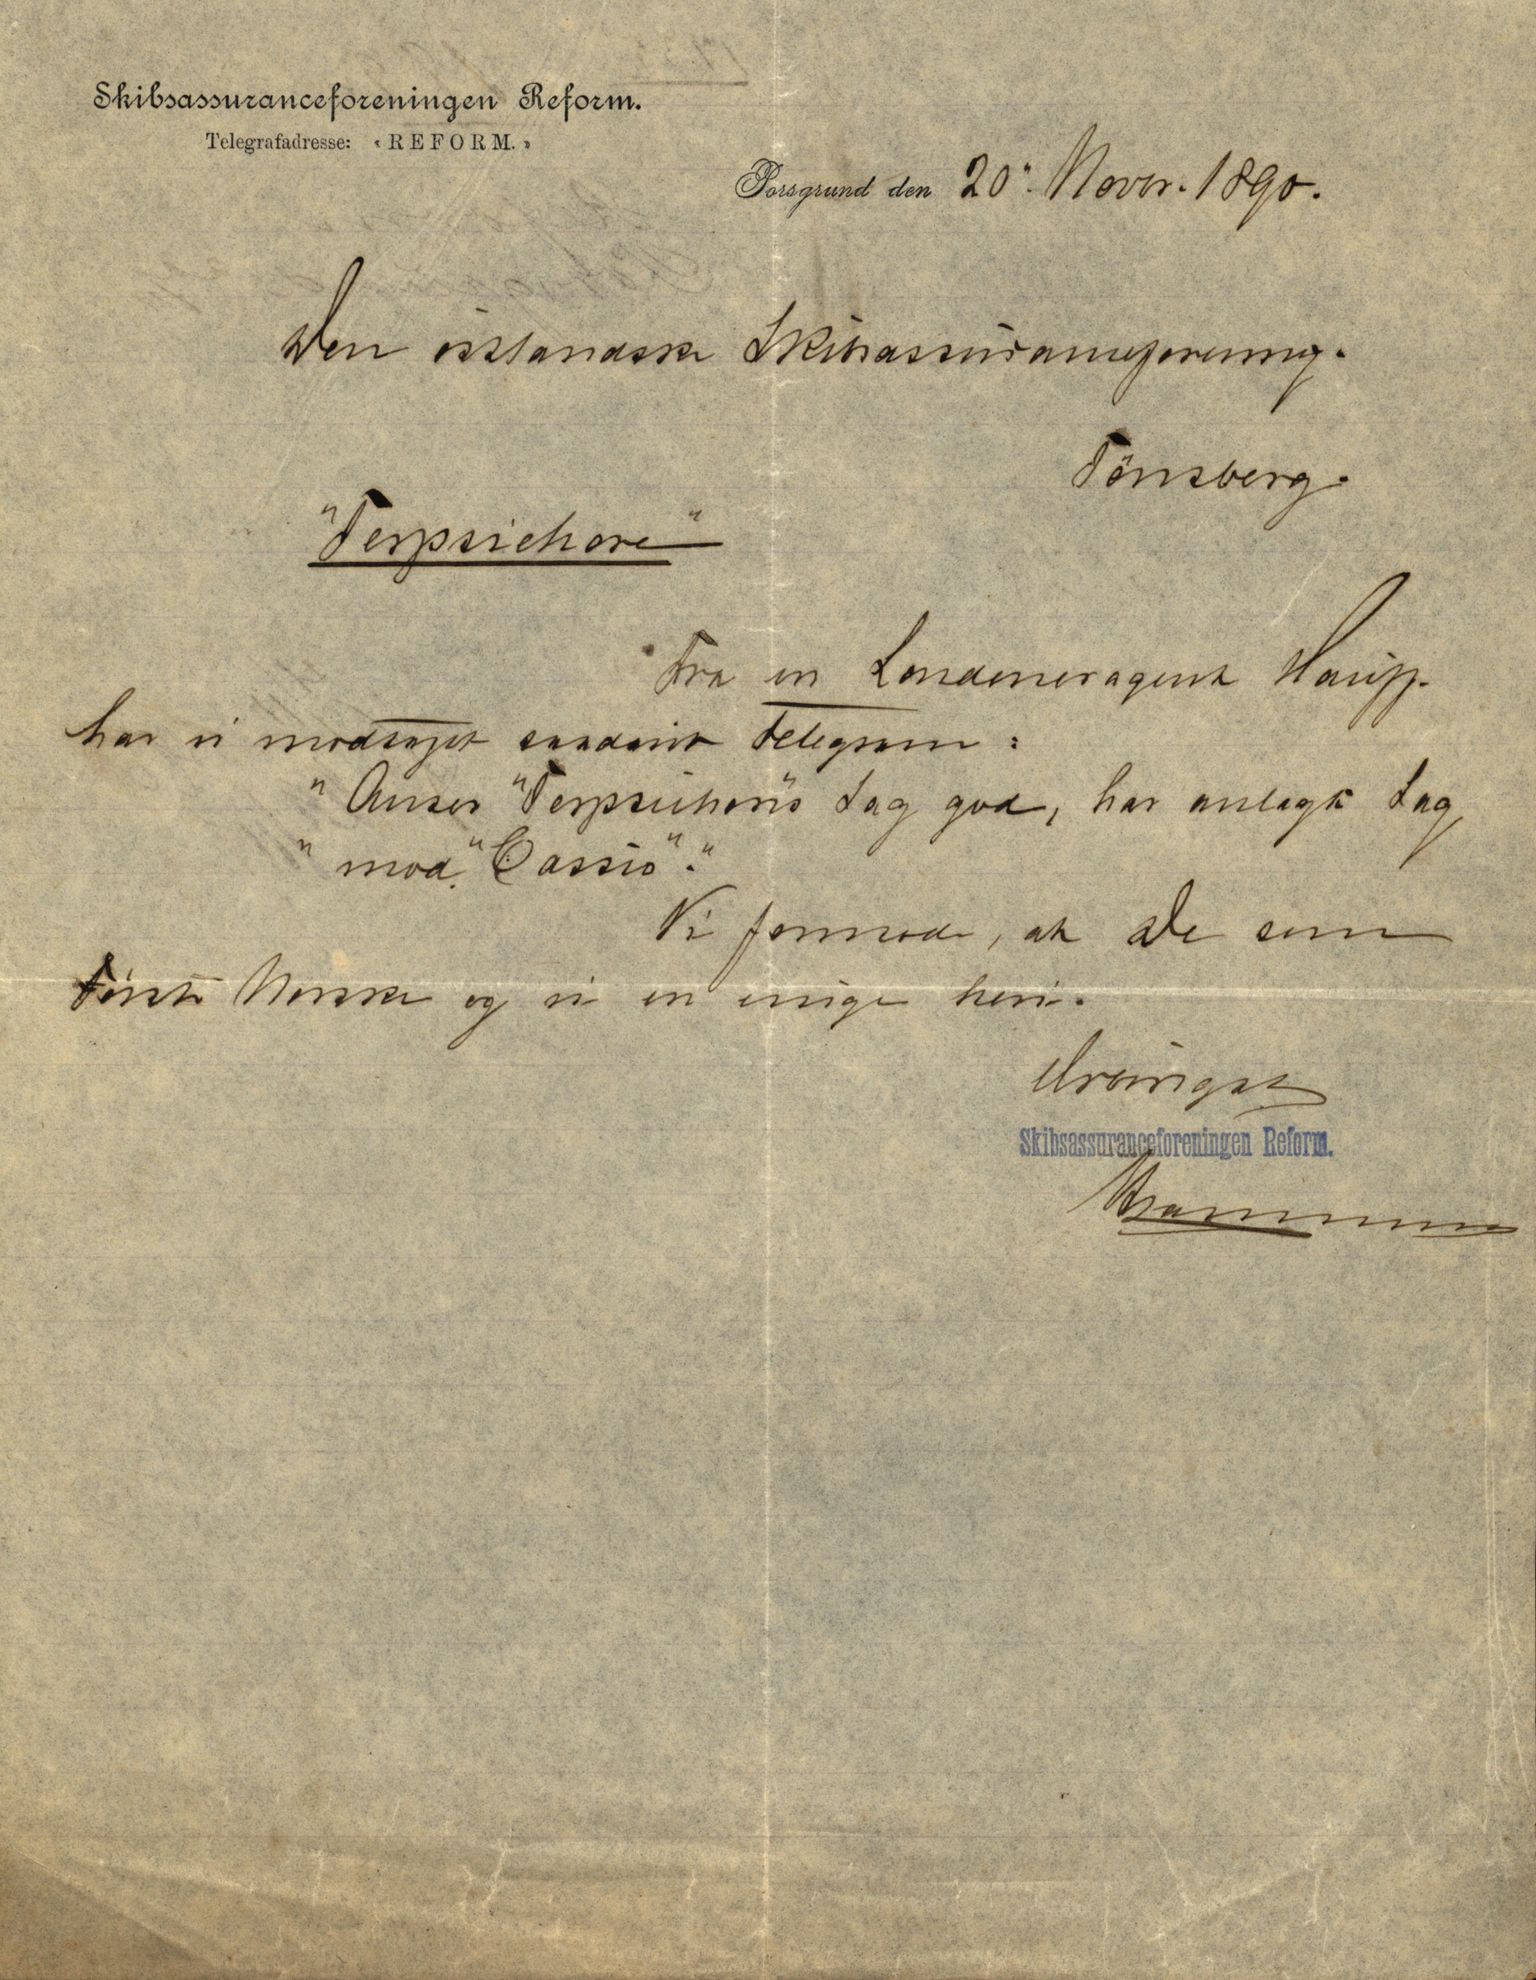 Skibsassuranceforeningen Reform.
Telegrafadresse: «REFORM.»
Porsgrund den 20. Novbr. 1890.
Den østlandske Skibsassuranceforening.
Tönsberg.
"Terpsichore"
Fra en Londoneragent
har vi modtaget saadant Telegram:
"Anser "Terpsichore's Sag god, har anlagt Sag
" mod "Cassio"."
Vi formode, at De som
Første Norske og vi er enige heri.
Ærbödigst
Skibsassuranceforeningen Reform.